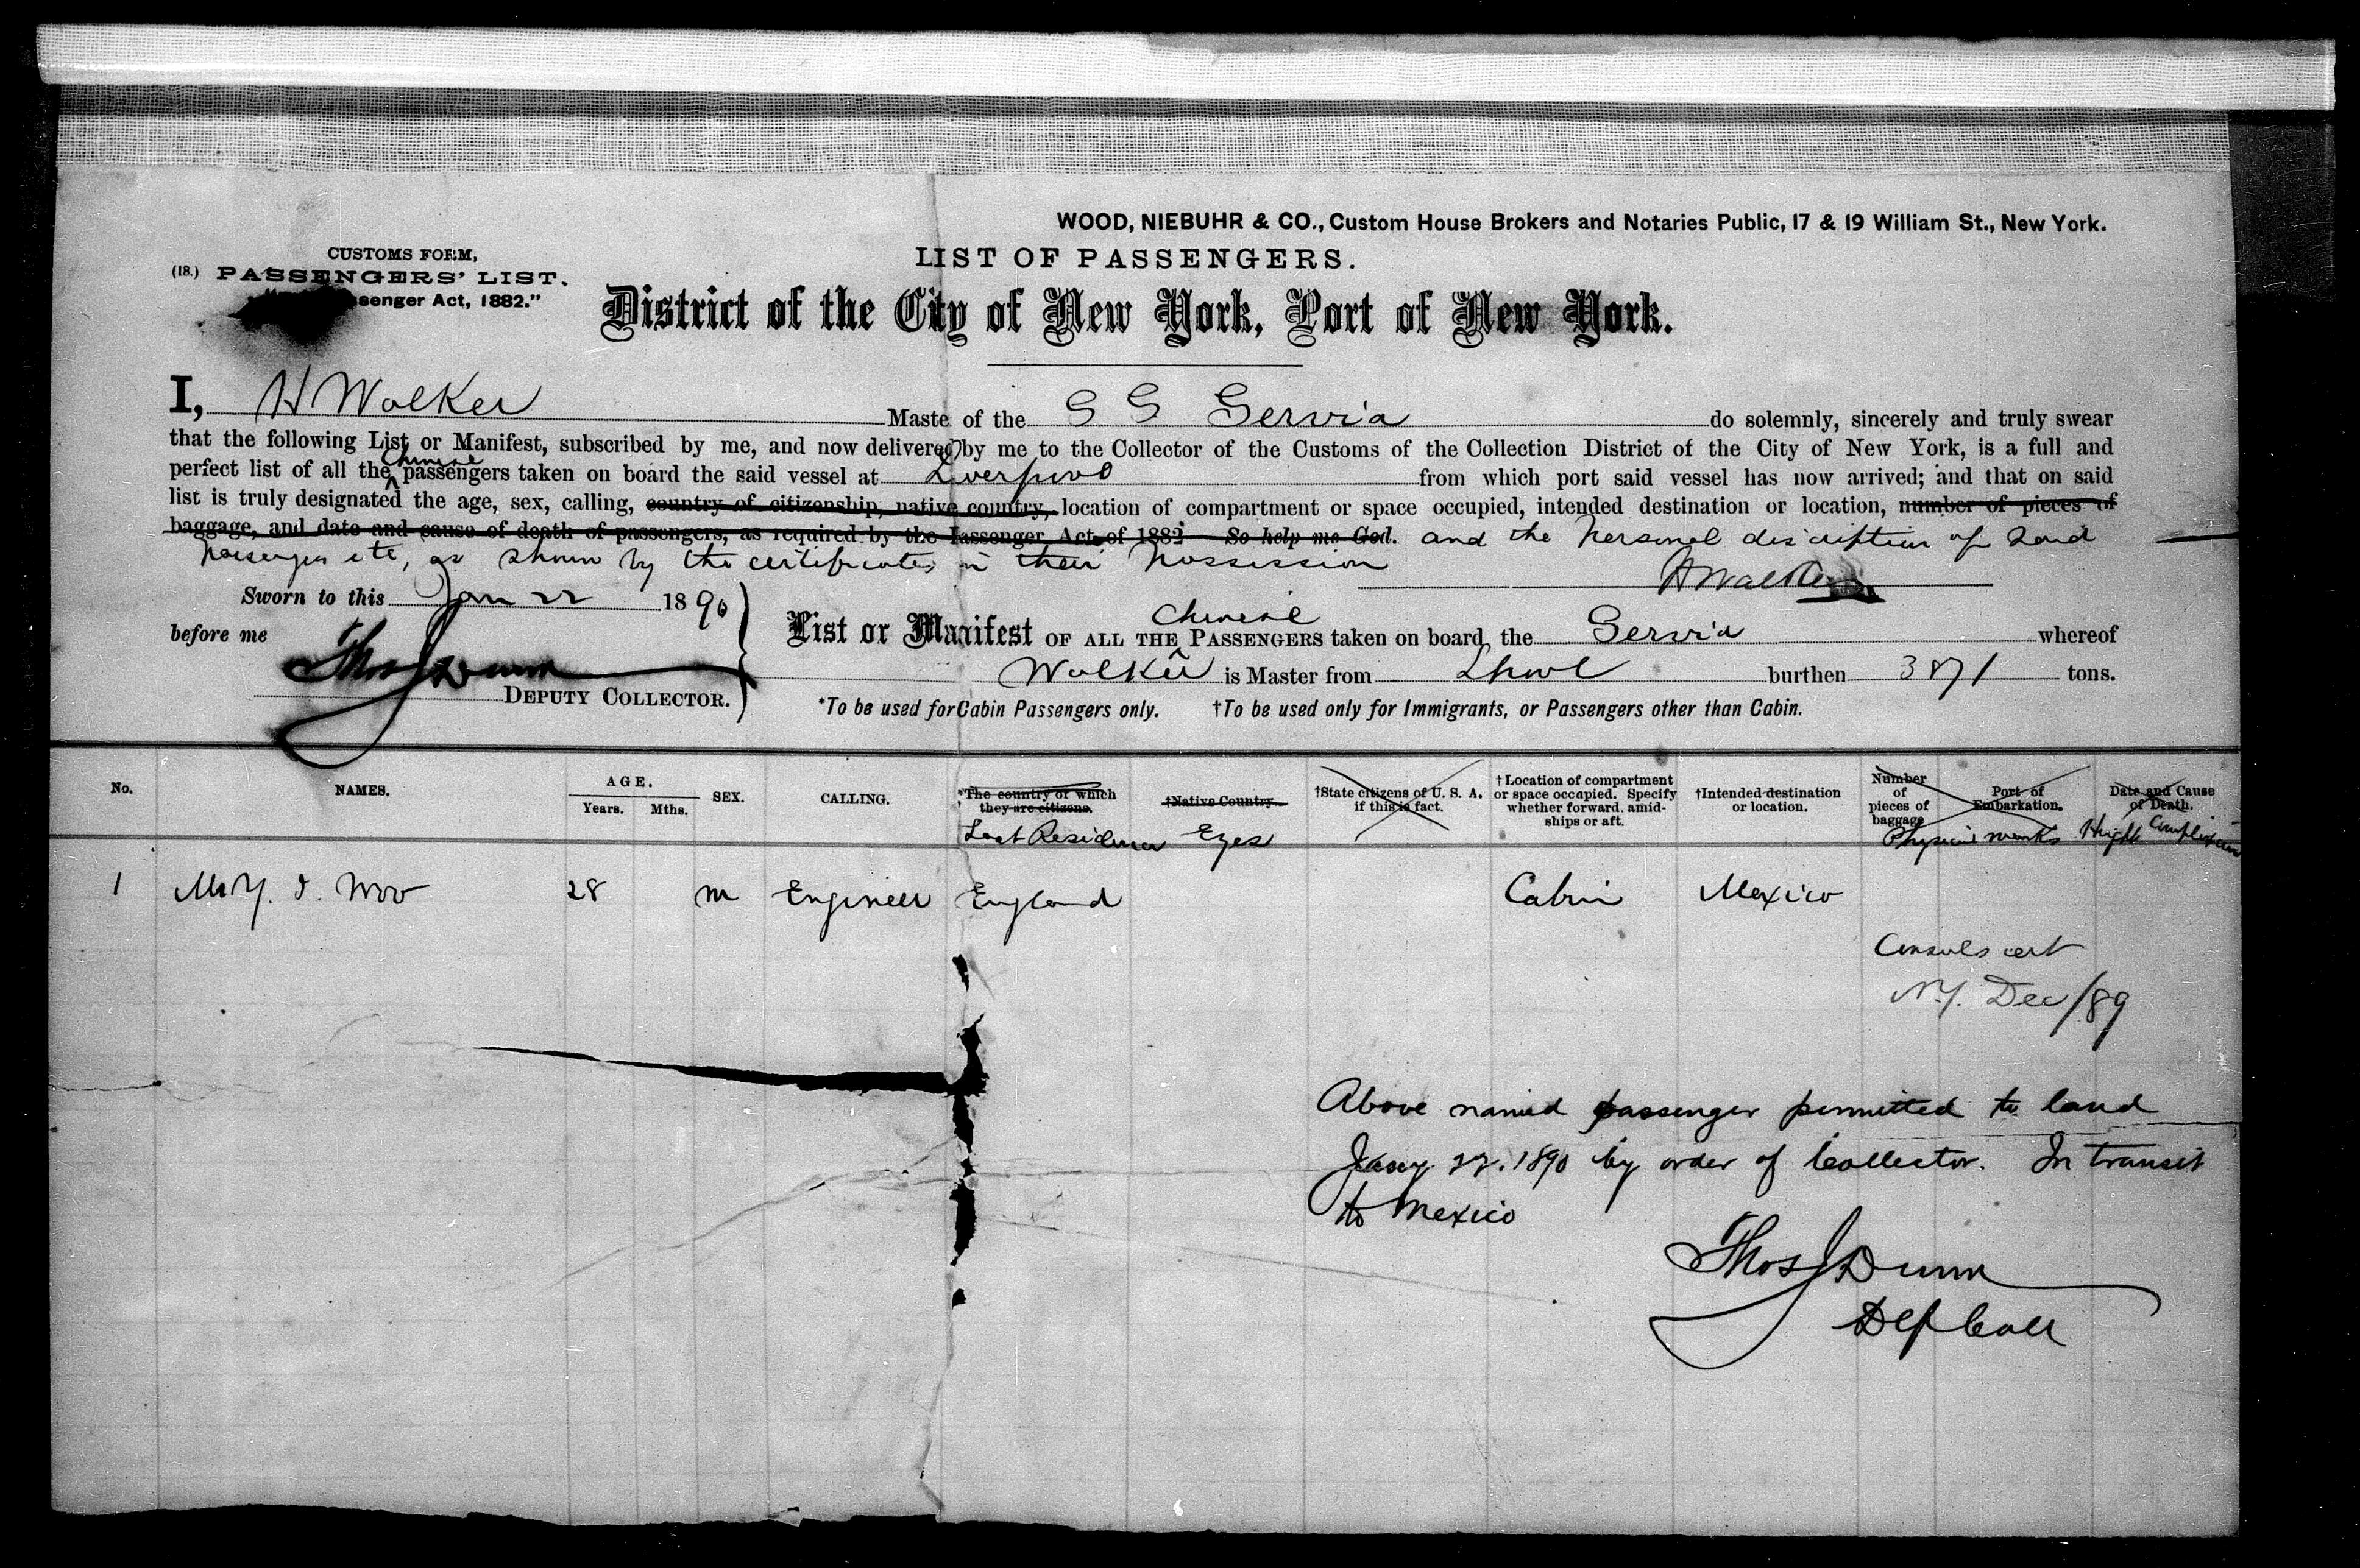 WOOD, NIEBUHR & CO., Custom House Brokers and Notaries Public, 17 & 19 William St., New York.
CUSTOMS FORM,
(18.) PASSENGERS' LIST.
ssenger Act, 1882."
LIST OF PASSENGERS.
District of the City of New York, Port of New York.
I, H Walker Maste of the S S Servia do solemnly, sincerely and truly swear
that the following List or Manifest, subscribed by me, and now delivered by me to the Collector of the Customs of the Collection District of the City of New York, is a full and
perfect list of all the Chinese passengers taken on board the said vessel at Liverpool from which port said vessel has now arrived; and that on said
list is truly designated the age, sex, calling, country of citizenship, native country, location of compartment or space occupied, intended destination or location, number of pieces of
baggage, and date and cause of death of passengers, as required by the Passenger Act of 1882 So help me God. and the Personal discription of said
passenger etc, as shown by the certificates in their possession
H Walker
Sworn to this Jan 22 1890
before me
Thos J Dunn
DEPUTY COLLECTOR.
List or Manifest OF ALL THE Chinese PASSENGERS taken on board the Servia whereof
Walker is Master from Lpool burthen 3871 tons.
*To be used for Cabin Passengers only. †To be used only for Immigrants, or Passengers other than Cabin.
No. NAMES. AGE. Years. Mths. SEX. CALLING. *The country of which they are citizens. †Native Country. †State citizens of U. S. A. if this is fact. †Location of compartment or space occupied. Specify whether forward, amidships or aft. †Intended destination or location. Number of pieces of baggage Port of Embarkation. Date and Cause of Death.
Last Residence Eyes Physical marks Hight Complexion
1 Mr Y. J. Woo 28 m Engineer England Cabin Mexico
Consuls cert
N.Y. Dec/89
Above named passenger permitted to land
Jany 22. 1890 by order of Collector. In transit
to Mexico
Thos J Dunn
Dep Coll